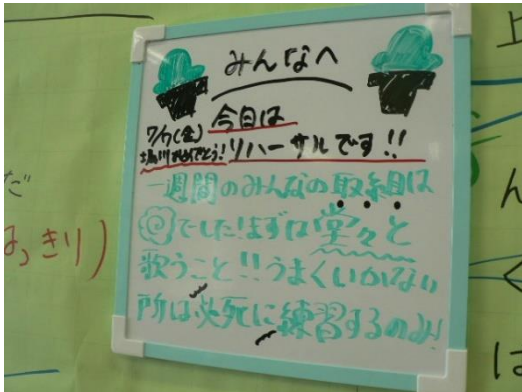 みんなへ
7/7(金) 今日は
おめでとう! リハーサルです!!
一週間のみんなの取組は
◎でした!まずは堂々と
歌うこと!!うまくいかない
所は必死に練習するのみ!
っきり)